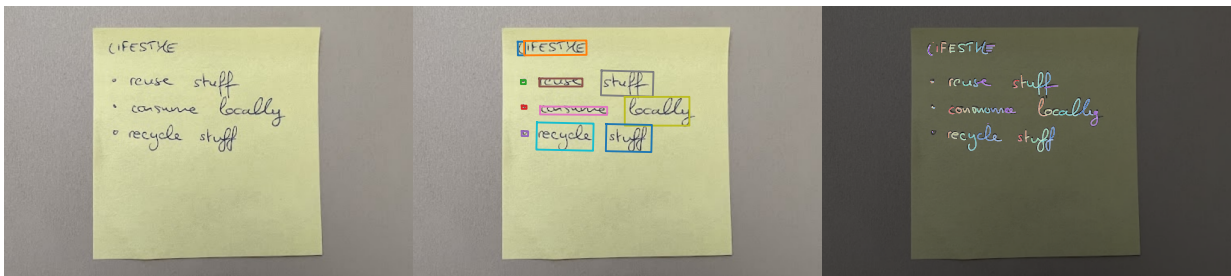 LIFESTYLE
• reuse stuff
• consume locally
• recycle stuff
LIFESTYLE
• reuse stuff
• consume locally
• recycle stuff
LIFESTYLE
• reuse stuff
• locally
• recycle stuff